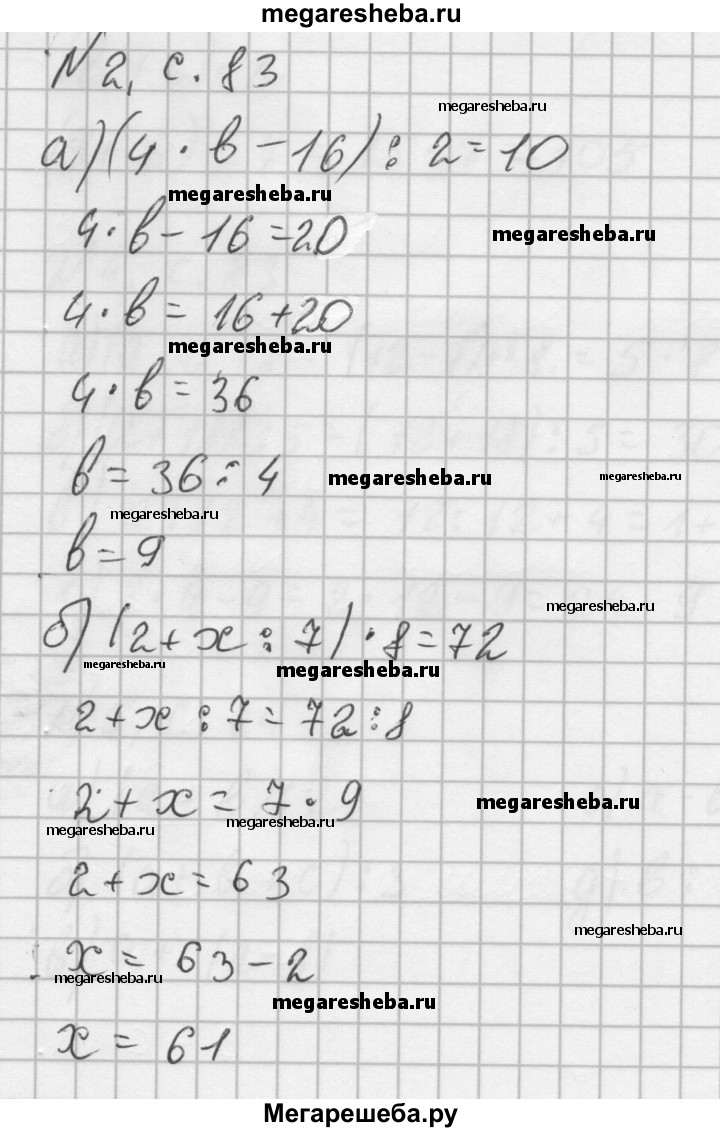 megaresheba.ru
N 2, с. 83
megaresheba.ru
а) (4 · в − 16) : 2 = 10
megaresheba.ru
4 · в − 16 = 20
megaresheba.ru
4 · в = 16 + 20
megaresheba.ru
4 · в = 36
в = 36 : 4
megaresheba.ru
megaresheba.ru
megaresheba.ru
в = 9
megaresheba.ru
б) (2 + х : 7) · 8 = 72
megaresheba.ru
megaresheba.ru
2 + х : 7 = 72 : 8
2 + х = 7 · 9
megaresheba.ru
megaresheba.ru
megaresheba.ru
2 + х = 63
megaresheba.ru
х = 63 − 2
megaresheba.ru
megaresheba.ru
х = 61
Мегарешеба.ру